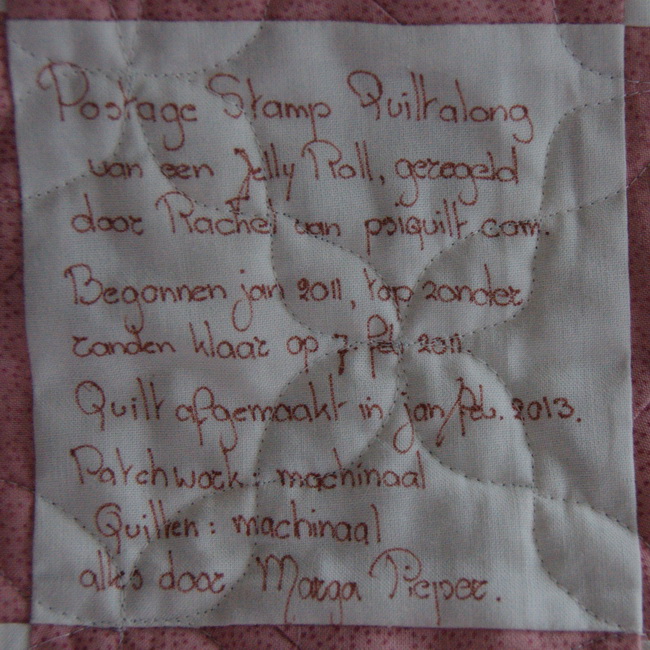 Postage Stamp Quiltalong
van een Jelly Roll, geregeld
door Rachel van psiquilt.com.
Begonnen jan 2011, top zonder
randen klaar op 7 feb. 2011.
Quilt afgemaakt in jan/feb. 2013.
Patchwork: machinaal
Quilten: machinaal
alles door Marga Pieper.